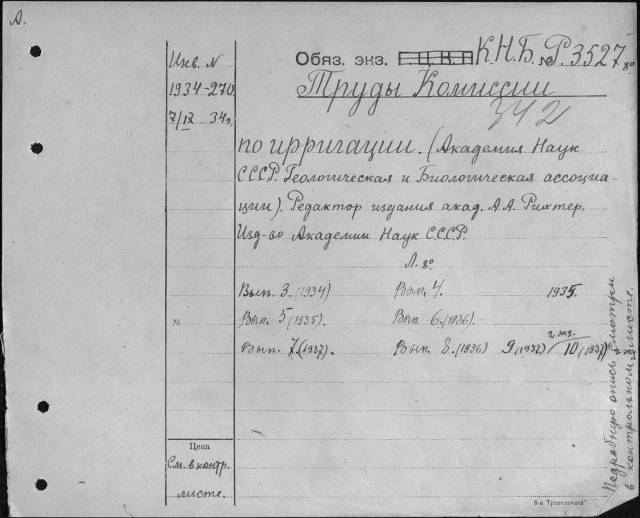 А.
Инв. N
1934-270
7/IV 34г.
Обяз. экз. Г.Ц.К.П. К.Н.Б. № Р.3527 8°
Труды Комиссии
342
по ирригации. (Академия Наук
СССР. Геологическая и Биологическая ассоциа-
ции). Редактор издания акад. А.А. Рихтер.
Изд-во Академии Наук СССР.
Л. 8°
Вып. 3. (1934) Вып. 4. 1935.
№ Вып. 5 (1935). Вып. 6. (1936).
2 экз.
Вып. 7. (1937). Вып. 8. (1936) 9 (1937) 10 (1937)
Цена
См. в контр.
листе.
Подробную опись смотри
в контрольном листе.
6-я Типолитогр."